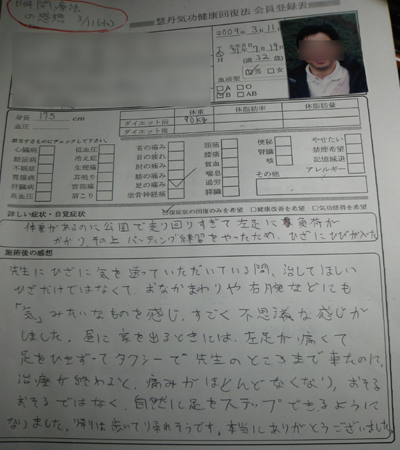 瞬間療法
の感想 3/11(水)
慧丹気功健康回復法 会員登録表
2009年3月11
7月19
(満32歳)
男 女
血液型
A O
B AB
身長 175 cm
体重
体脂肪率
体脂肪量
血圧
ダイエット前 90kg
ダイエット後
該当するものにチェックして下さい
心臓病
糖尿病
不眠症
胃腸病
肝臓病
高血圧
低血圧
冷え症
生理痛
耳鳴り
胃弱
肩こり
首の痛み
目の疲れ
肘の痛み
膝の痛み
足の痛み
坐骨神経痛
頭痛
腰痛
貧血
喘息
過労
肝臓
便秘
腎臓
咳
その他
やせたい
禁煙希望
記憶減退
アレルギー
詳しい症状・自覚症状
症症状の回復のみを希望 健康改善を希望 気功修得を希望
体重があるのに公園で走り回りすぎて左足に負荷が
かかり、その上バッティング練習をやったため、ひざにひびが入た
施術後の感想
先生にひざに気を送っていただいている間、治してほしい
ひざだけではなくて、おなかまわりや右腕などにも
「気」みたいなものを感じ、すごく不思議な感じが
しました。昼に家を出るときには、左足が痛くて
足をひきずってタクシーで先生のところまで来たのに、
治療が終わると、痛みがほとんどなくなり、おそる
おそるではなく、自然に足をステップできるように
なりました。帰りは歩いて帰れそうです。本当にありがとうございました